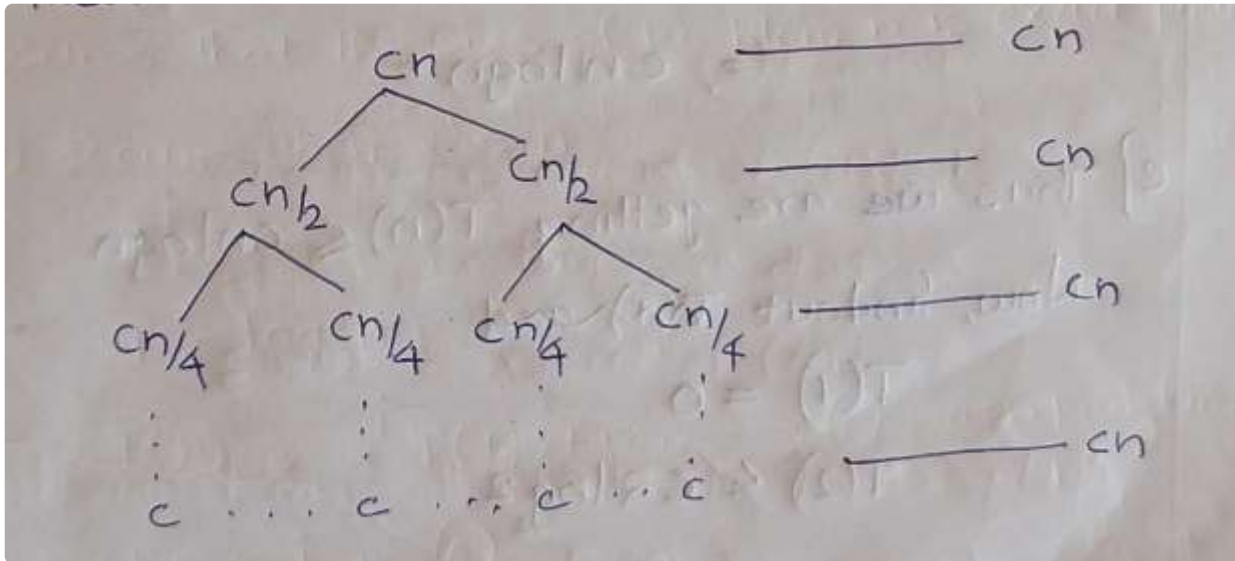 cn cn
cn/2 cn/2 cn
cn/4 cn/4 cn/4 cn/4 cn
c .... c .... c ... c cn